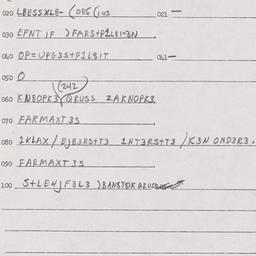 020 L8E55XL8- (085 (103 021 —
030 EPNT IF ) FARS+P2L8I-3N
040 OP=UPG3S+P2L8IT 041—
050 O
(242)
060 KN8OPK3 QRUSS ZAKNOPK3
070 FARMAXT3S
080 2KLAX / EJR3RS+T3 1NT3RS+T3 )K3N OND3R3.
090 FARMAXT3S
100 S+LE4JF3L3 )BANST0K QRUSS